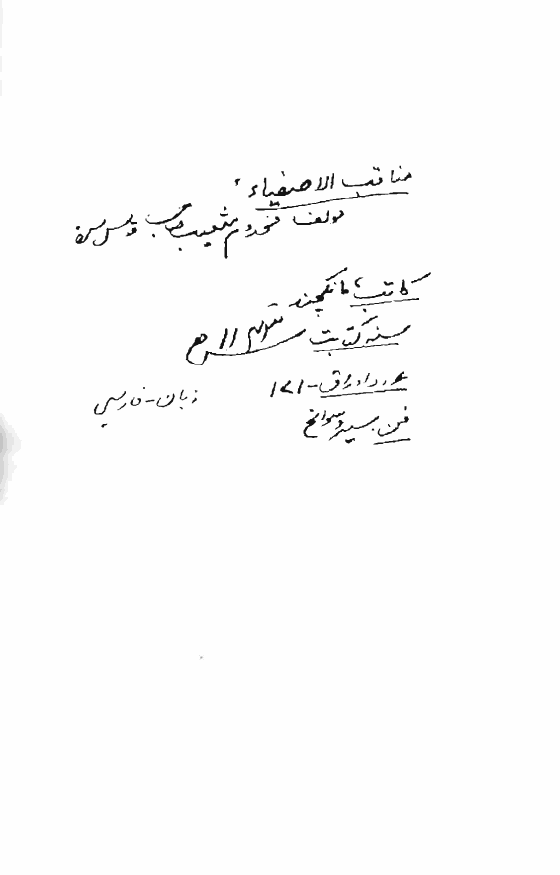 مناقب الاصفیاء
مولف مخدوم شعیب صاحب قدس سرہ
کاتب مانکچند
سنہ کتابت
عدد اوراق - ۱۷۱ زبان - فارسی
فن سیر و سوانح